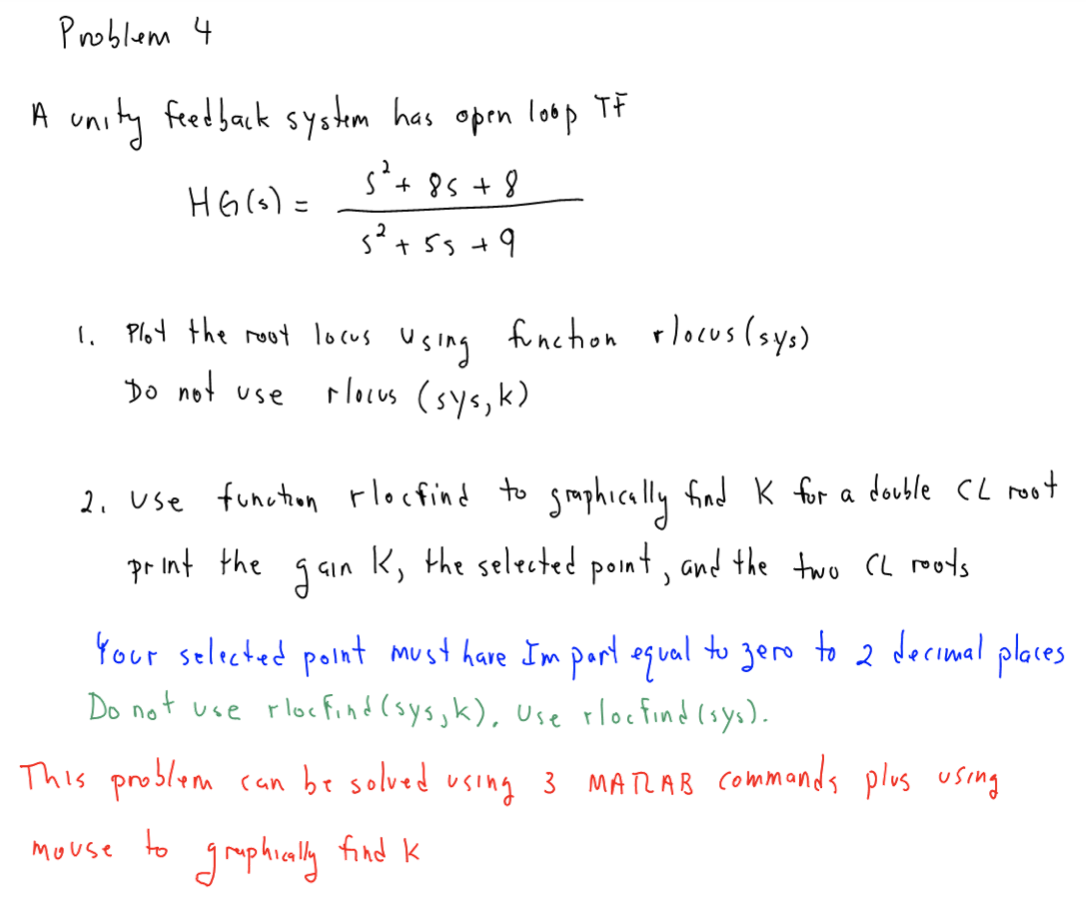 Problem 4
A unity feedback system has open loop TF
HG(s) = (s² + 8s + 8) / (s² + 5s + 9)
1. Plot the root locus using function rlocus(sys)
Do not use rlocus (sys, k)
2. Use function rlocfind to graphically find K for a double CL root
print the gain K, the selected point, and the two CL roots
Your selected point must have Im part equal to zero to 2 decimal places
Do not use rlocfind(sys,k). Use rlocfind(sys).
This problem can be solved using 3 MATLAB commands plus using
mouse to graphically find K